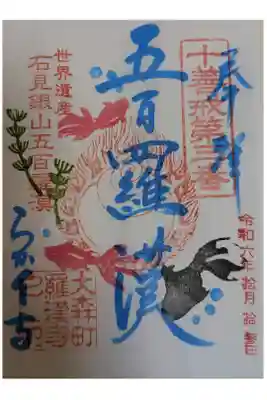 奉拝
十善戒第三番
五百羅漢
世界遺産
石見銀山五百羅漢
大森町
羅漢寺
令和六年拾月拾